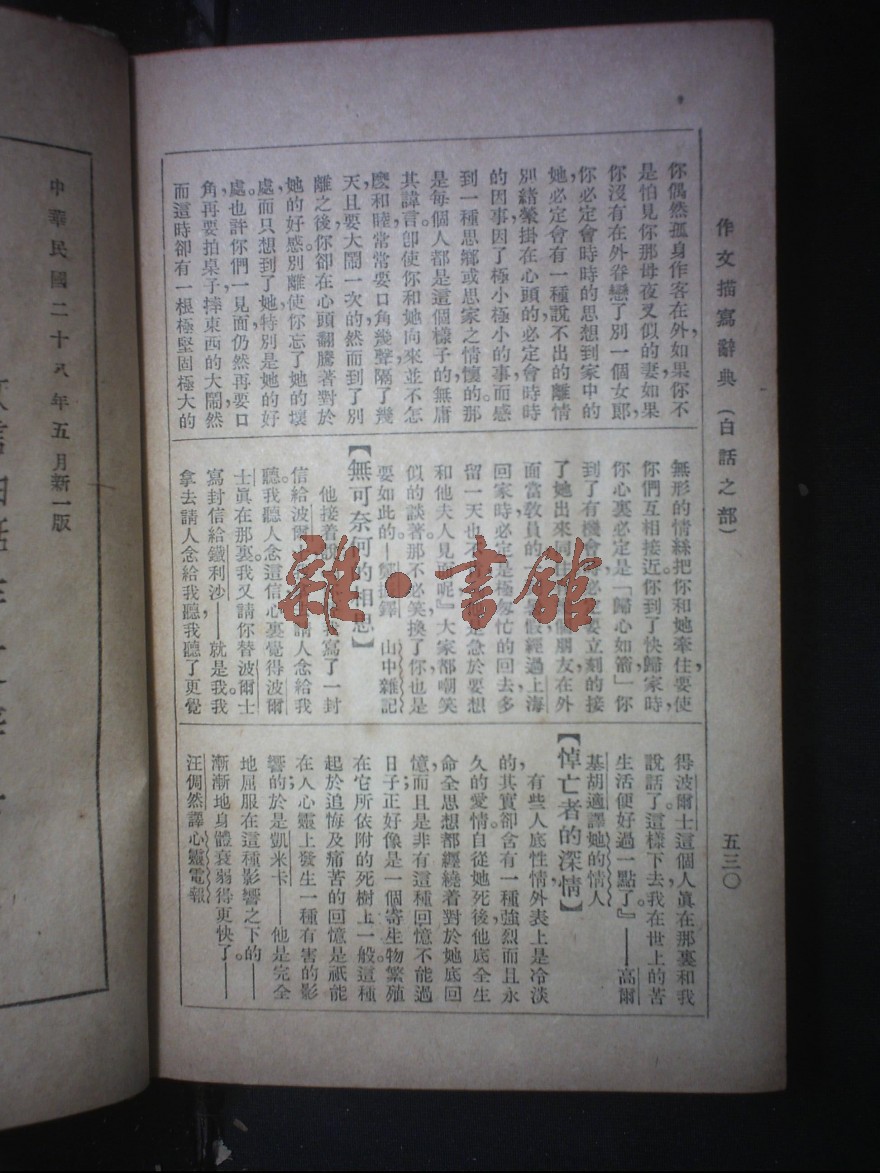 作文描寫辭典（白話之部）
五三〇
你偶然孤身作客在外，如果你不
是怕見你那母夜叉似的妻，如果
你沒有在外眷戀了別一個女郎，
你必定會時時的思想到家中的
她，必定會有一種說不出的離情
別緒縈掛在心頭的，必定會時時
的因事因了極小極小的事而感
到一種思鄉或思家之情懷的。那
是每個人都是這個樣子的，無庸
其諱言。卽使你和她向來並不怎
麽和睦，常常要口角幾聲，隔了幾
天且要大鬧一次的，然而到了別
離之後，你卻在心頭翻騰著對於
她的好感。別離使你忘了她的壞
處，而只想到了她特別是她的好
處。也許你們一見面仍然再要口
角，再要拍桌子摔東西的大鬧，然
而這時卻有一根極堅固極大的
無形的情絲把你和她牽住，要使
你們互相接近。你到了快歸家時，
你心裏必定是「歸心如箭」，你
到了有機會，必要立刻的接
了她出來同住。朋友在外
面當教員的，經過上海
回家時，必定是極匆忙的回去，多
留一天也不是急於要想
和他夫人見面呢』大家都嘲笑
似的談著。那不必笑，換了你，也是
要如此的。——鐸 山中雜記
【無可奈何的相思】
他接着說我寫了一封
信給波爾士，請人念給我
聽。我聽人念這信，心裏覺得波爾
士眞在那裏。我又請你替波爾士
寫封信給鐵利沙——就是我。我
拿去請人念給我聽，我聽了更覺
得波爾士這個人眞在那裏和我
說話了。這樣下去，我在世上的苦
生活便好過一點了。』——高爾
基胡適譯她的情人
【悼亡者的深情】
有些人底性情外表上是冷淡
的，其實卻含有一種強烈而且永
久的愛情。自從她死後，他底全生
命全思想都纏繞着對於她底回
憶；而且是非有這種回憶不能過
日子；正好像是一個寄生物繁殖
在它所依附的死樹上一般。這種
起於追悔及痛苦的回憶是祇能
在人心靈上發生一種有害的影
響的；於是凱米卡——他是完全
地屈服在這種影響之下的——
漸漸地身體衰弱得更快了。——
汪倜然譯心靈電報
中華民國二十八年五月新一版